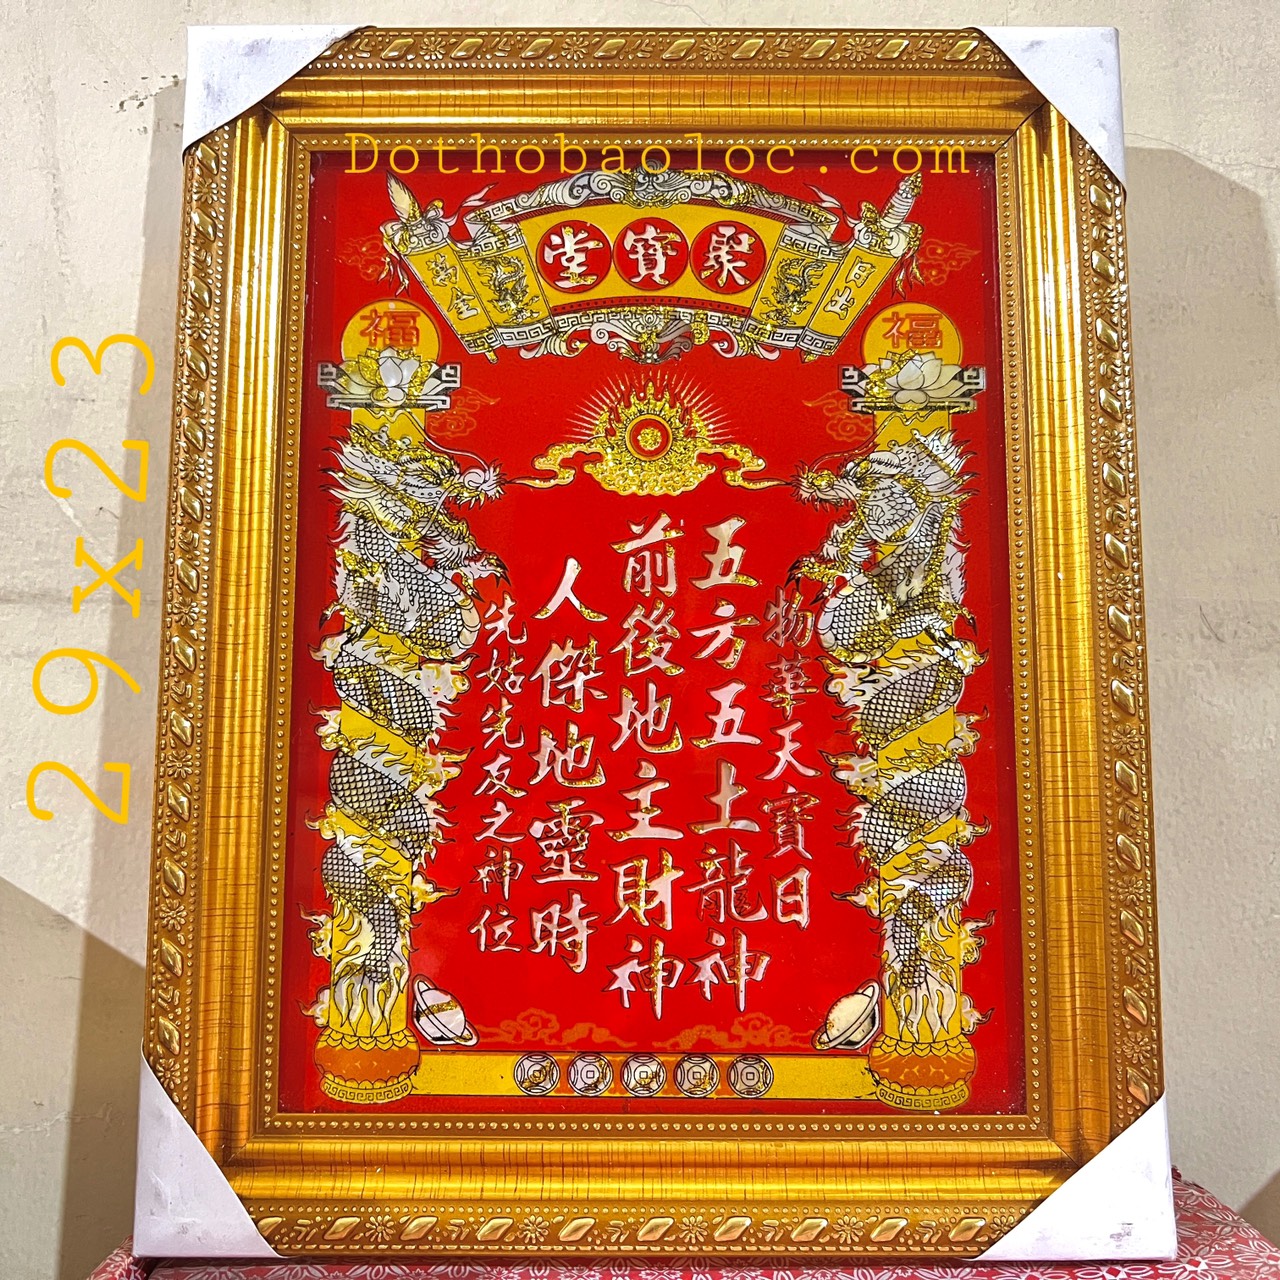 Dothobaoloc.com
29x23
聚寳堂
日出
萬金
福
福
物華天寳日
五方五土龍神
前後地主財神
人傑地靈時
先姑先友之神位